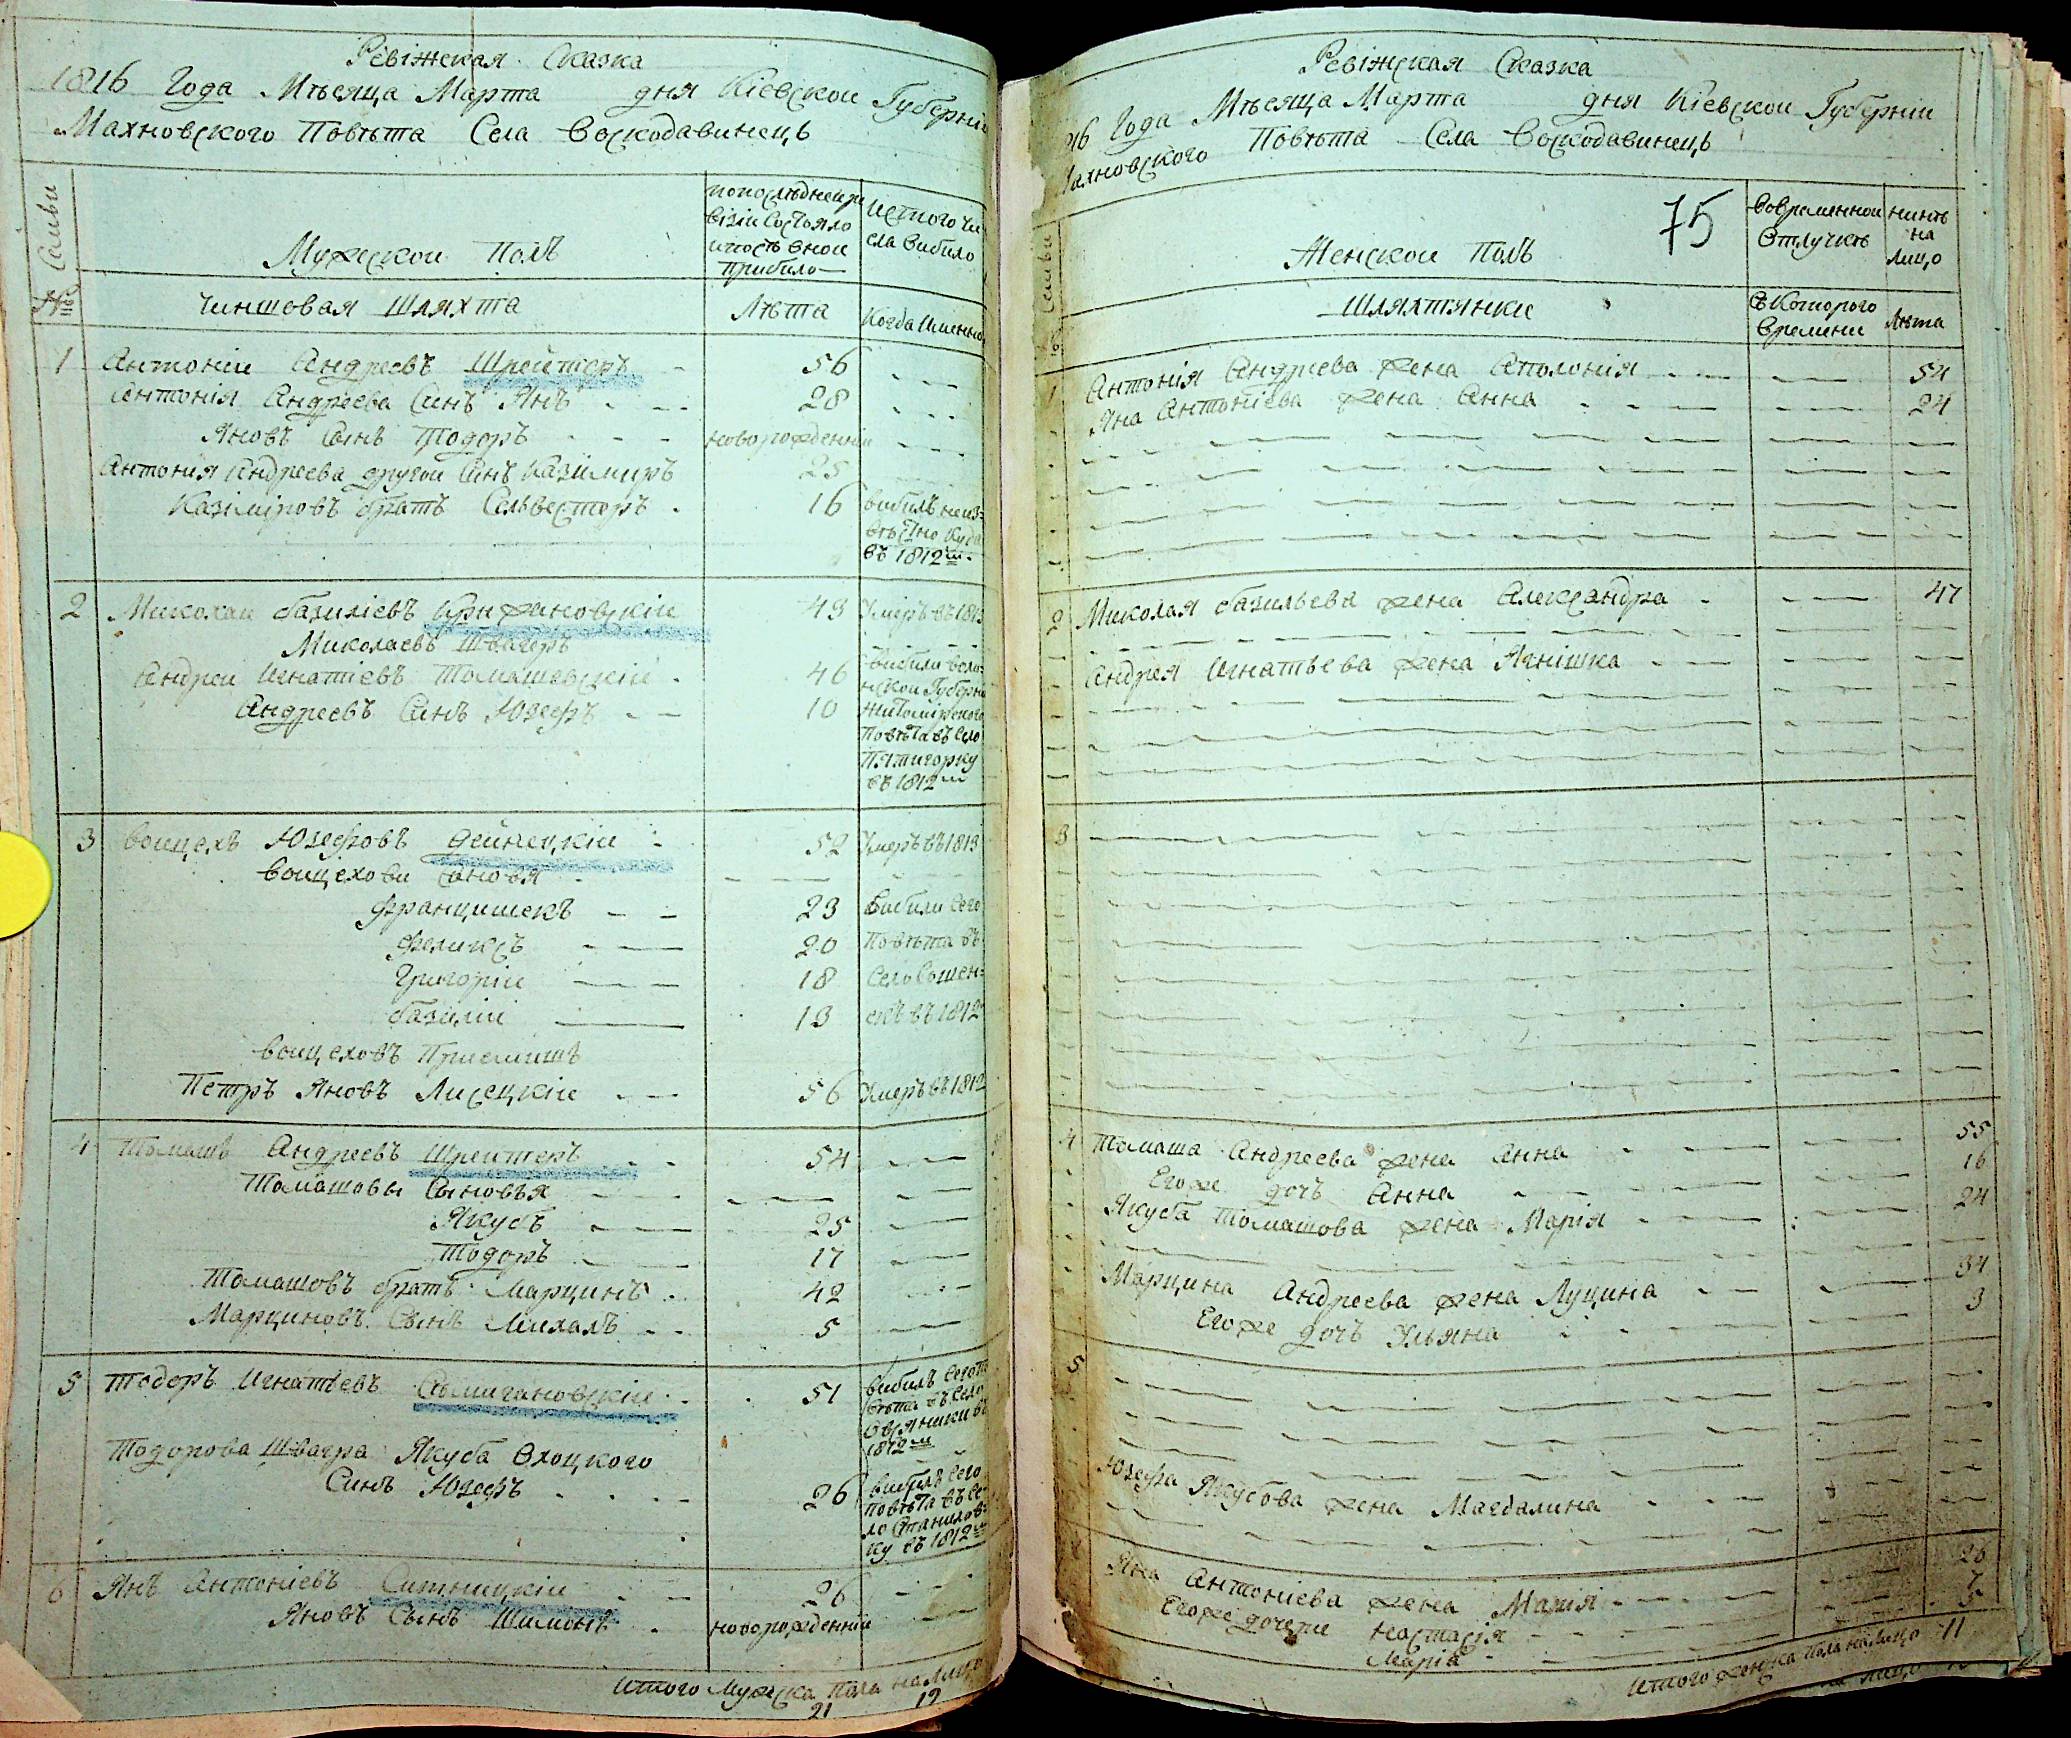 Ревіжская Сказка
1816 Года Мѣсяца Марта дня Кіевскои Губерніи
Махновского Повѣта Села Воскодавинецъ
№ Семьи
Мужскои Полъ
попослѣднеи ре
візіи состояло
ипость онои
прибило
Истого чи
сла вибило
Чиншовая Шляхта
Лѣта
Когда имянно
1 Антоніи Андреевъ Шрейтеръ 56
Антонія Андреева Синъ Янъ 28
Яновъ Сынъ Тодоръ новорожденніи
Антонія Андреева другои Синъ Казімиръ 25
Казіміровъ братъ Сельвестеръ 16 вибилъ неиз=
вѣстно куда
въ 1812м.
2 Миколаи базиліевъ Кржижановскіи 43 Умеръ въ 181
Миколаевъ Швагеръ
Андреи Игнатіевъ Томашевскіи 46 вибили воли=
нскои Губерни
Андреевъ Синъ Юзефъ 10 Житомірского
Повѣта въ село
Пятигорку
въ 1812м
3 Воицехъ Юзефовъ Дейнецкіи 52 Умеръ въ 1813
Воицехови Синовя
Францишекъ 23 Вибили сего
Феликсъ 20 Повѣта въ
Григоріи 18 Село
базиліи 13 въ 1812
Воицеховъ Приемишъ
Петръ Яновъ Лисецкіи 56 Умеръ въ 1812
4 Томашъ Андреевъ Шрейтеръ 54
Томашовы Сыновья
Якубъ 25
Тодоръ 17
Томашовъ братъ Марцинъ 42
Марциновъ Сынъ Михалъ 5
5 Тодоръ Игнатьевъ Смигановскіи 51 вибилъ сего по
вѣта въ село
Овсяники въ
1812м
Тодорова Швагра Якуба Охоцкого
Синъ Юзефъ 26 вибилъ сего
повѣта въ се=
ло Станилов=
ку въ 1812м
6 Янъ Антоніевъ Ситницкіи 26
Яновъ Сынъ Шимонъ новорожденніи
Итого Мужска Пола на Лицо
21 12
Ревіжская Сказка
816 Года Мѣсяца Марта дня Кіевскои Губерніи
Махновского Повѣта Села Воскодавинецъ
Семьи
Женскои Полъ
75
Вовременнои
Отлучкѣ
нинѣ
на
лицо
Шляхтянки
Съ Которого
Времени
Лѣта
1 Антонія Андреева жена Аполонія 54
Яна Антоніева жена Анна 24
2 Миколая базильева жена Александра 47
Андрея Игнатьева жена Ягнішка
3
4 Томаша Андреева жена Анна 55
Егоже дочъ Анна 16
Якуба Томашова жена Марія 24
Марцина Андреева жена Луцина 34
Егоже дочъ Ульяна 3
5
Юзефа Якубова жена Магдалина
Яна Антоніева жена Марія 26
Егоже дочери Настасія 7
Марія 5
Итого женска Пола на Лицо 11